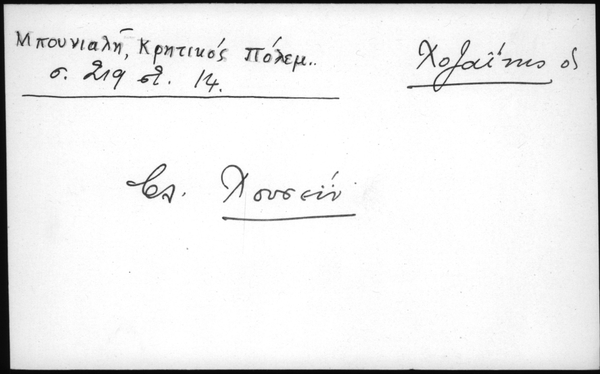 Μπουνιαλή, Κρητικός Πόλεμ..
σ. 219 στ. 14.
Χοζαΐτης ὁ
βλ. Χουσεΐν